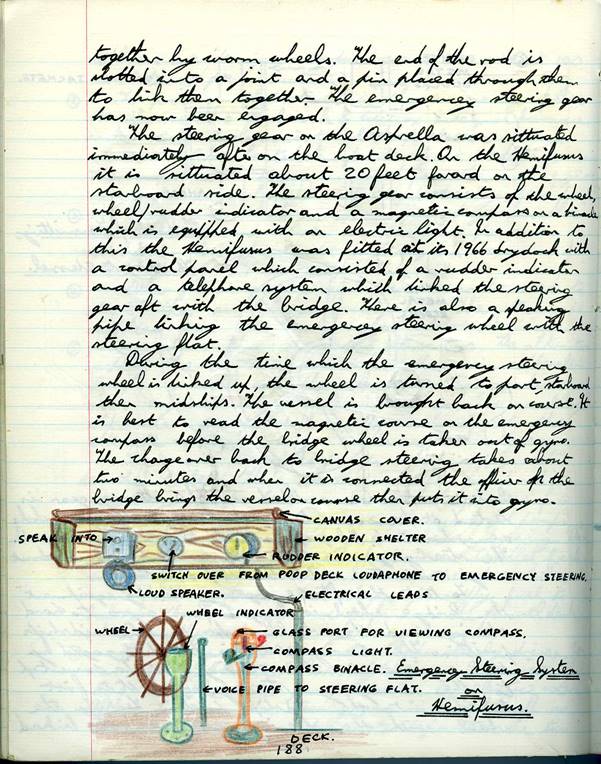 together by worm wheels. The end of the rod is
slotted into a joint and a pin placed through them
to link them together. The emergencey steering gear
has now been engaged.
The steering gear on the Asprella was sittuated
immediately after on the boat deck. On the Hemifusus
it is sittuated about 20 feet forard on the
starboard side. The steering gear consists of the wheel,
wheel/rudder indicator and a magnetic compass on a binacle
which is equipped with an electric light. In addition to
this the Hemifusus was fitted at its 1966 drydock with
a control panel which consisted of a rudder indicator
and a telephone system which linked the steering
gear aft with the bridge. There is also a speaking
pipe linking the emergencey steering wheel with the
steering flat.
During the time which the emergencey steering
wheel is linked up, the wheel is turned to port, starboard
then midships. The vessel is brought back on course. It
is best to read the magnetic course on the emergency
compass before the bridge wheel is taken out of gyro.
The changeover back to bridge steering takes about
two minutes and when it is connected the officer on the
bridge brings the vessel on course then puts it into gyro.
CANVAS COVER.
SPEAK INTO
WOODEN SHELTER
RUDDER INDICATOR.
SWITCH OVER FROM POOP DECK LOUDAPHONE TO EMERGENCEY STEERING.
LOUD SPEAKER.
ELECTRICAL LEADS
WHEEL INDICATOR
WHEEL
GLASS PORT FOR VIEWING COMPASS.
COMPASS LIGHT.
COMPASS BINACLE.
Emergencey Steering System
VOICE PIPE TO STEERING FLAT.
on
Hemifusus.
DECK.
188